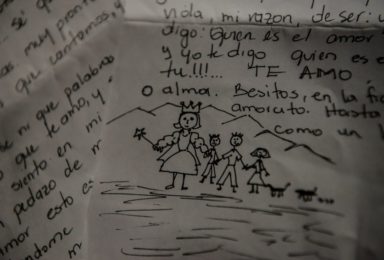 se que
muy pronto
que cantamos, y
ni que palabras
que te amo, y
siento: en mi
pedazo de m
amor esto es
ndome
vida, mi razon, de ser: y
digo: Quien es el amor
y yo te digo quien es e
tu!!!... TE AMO
alma. Besitos, en la
amorcito. Hasta
como un